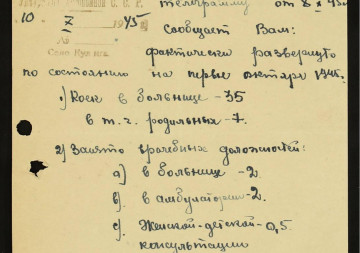 телеграмму от 8 X 45
10 X 1945
Сообщает Вам:
фактически развернуто
по состоянию на первое октября 1945 г.
1) Коек в больнице - 35
в т.ч. родильных - 7.
2) Занято врачебных должностей:
а) в больнице - 2.
в) в амбулатории - 2.
с) Женской-детской - 0,5
консультации